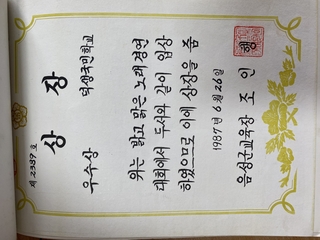 제 2387 호
상 장
우수상 덕생국민학교
위는 밝고 맑은 노래 경연
대회에서 두서와 같이 입상
하였으므로 이에 상장을 줌
1987년 6월 26일
음성군교육장 조 인 행